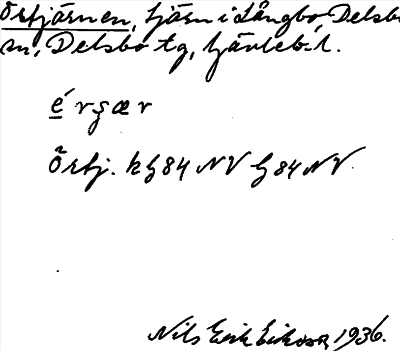 Örtjärnen, tjärn i Långbo, Delsbo
sn, Delsbo tg, Gävleb. l.
Örtj. k G 84 NV G 84 NV.
Nils Erik Eriksson 1936.